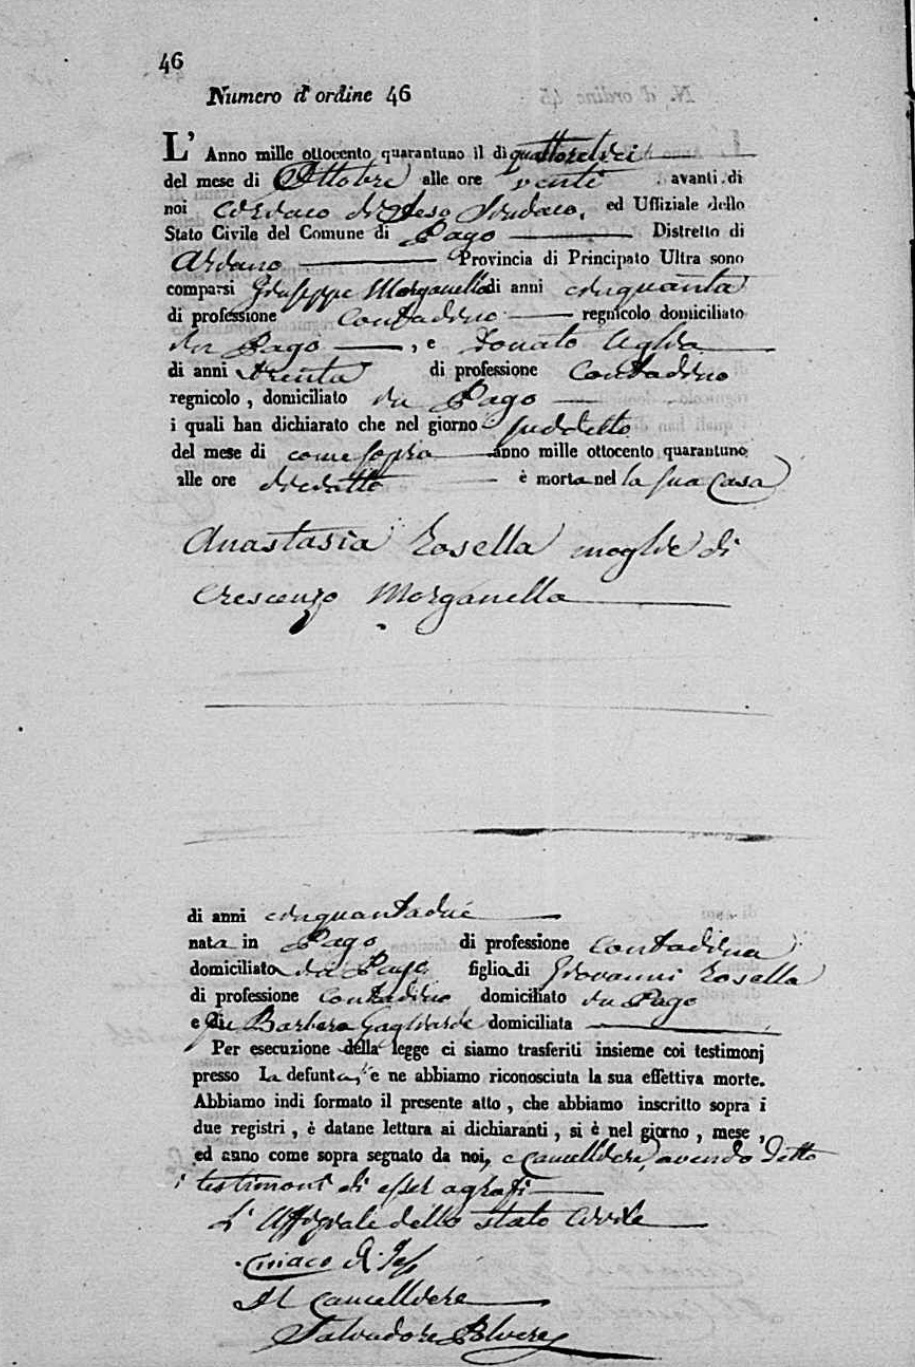 46
Numero d'ordine 46
L' Anno mille ottocento quarantuno il dì quattordici
del mese di Ottobre alle ore venti avanti di
noi Ciriaco di Jeso Sindaco, ed Uffiziale dello
Stato Civile del Comune di Pago Distretto di
Ariano Provincia di Principato Ultra sono
comparsi Giuseppe Morganella di anni cinquanta
di professione Contadino regnicolo domiciliato
in Pago , e Donato Uglia
di anni trenta di professione Contadino
regnicolo , domiciliato in Pago
i quali han dichiarato che nel giorno suddetto
del mese di come sopra anno mille ottocento quarantuno
alle ore dieciotto è morta nel la sua Casa
Anastasia Rosella moglie di
Crescenzo Morganella
di anni cinquantadue
nata in Pago di professione contadina
domiciliata in Pago figlia di Giovanni Rosella
di professione Contadino domiciliato in Pago
e di fu Barbera Gagliarde domiciliata
Per esecuzione della legge ci siamo trasferiti insieme coi testimonj
presso La defunta, e ne abbiamo riconosciuta la sua effettiva morte.
Abbiamo indi formato il presente atto , che abbiamo inscritto sopra i
due registri , è datane lettura ai dichiaranti , si è nel giorno , mese ,
ed anno come sopra segnato da noi, e Cancelliere, avendo detto
i testimoni di esser agrafi
L' Uffiziale dello stato Civile
Ciriaco di Jeso
Il Cancelliere
Salvadore Polvere